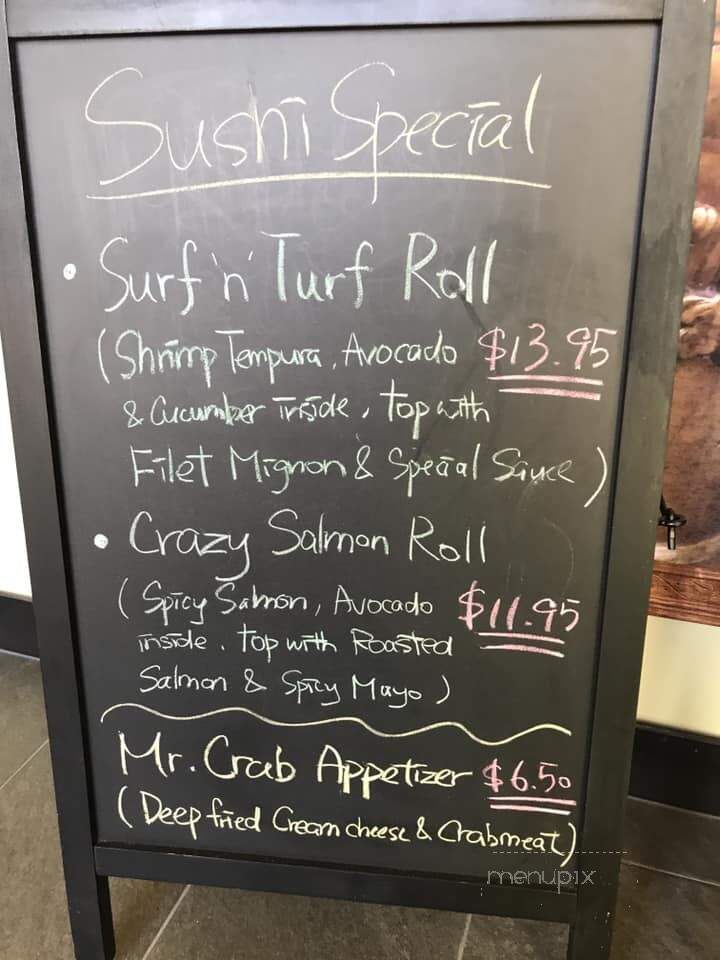 Sushi Special
• Surf 'n' Turf Roll
(Shrimp Tempura, Avocado $13.95
& Cucumber inside, top with
Filet Mignon & Special Sauce)
• Crazy Salmon Roll
(Spicy Salmon, Avocado $11.95
inside, top with Roasted
Salmon & Spicy Mayo)
Mr. Crab Appetizer $6.50
(Deep fried Cream cheese & Crabmeat)
menupix